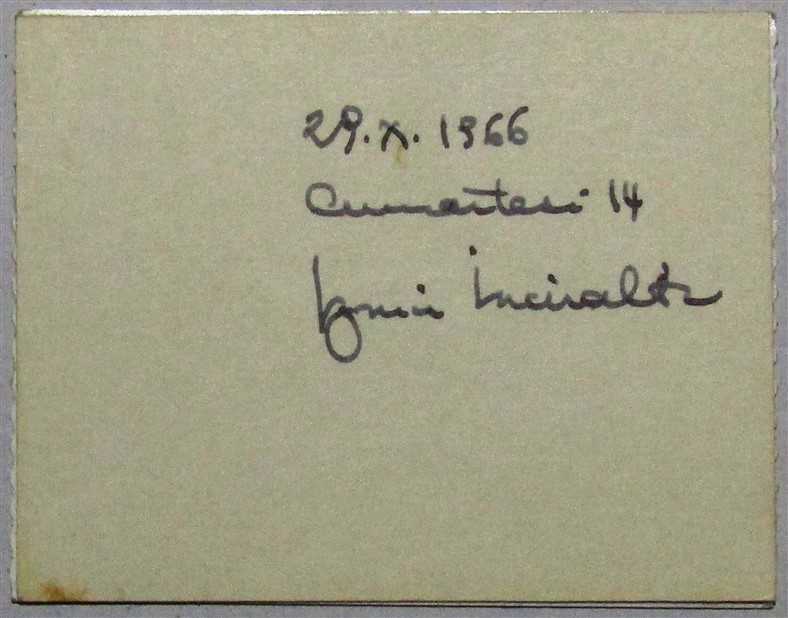 29.X.1966
Cumartesi 14
Izmir İnciraltı